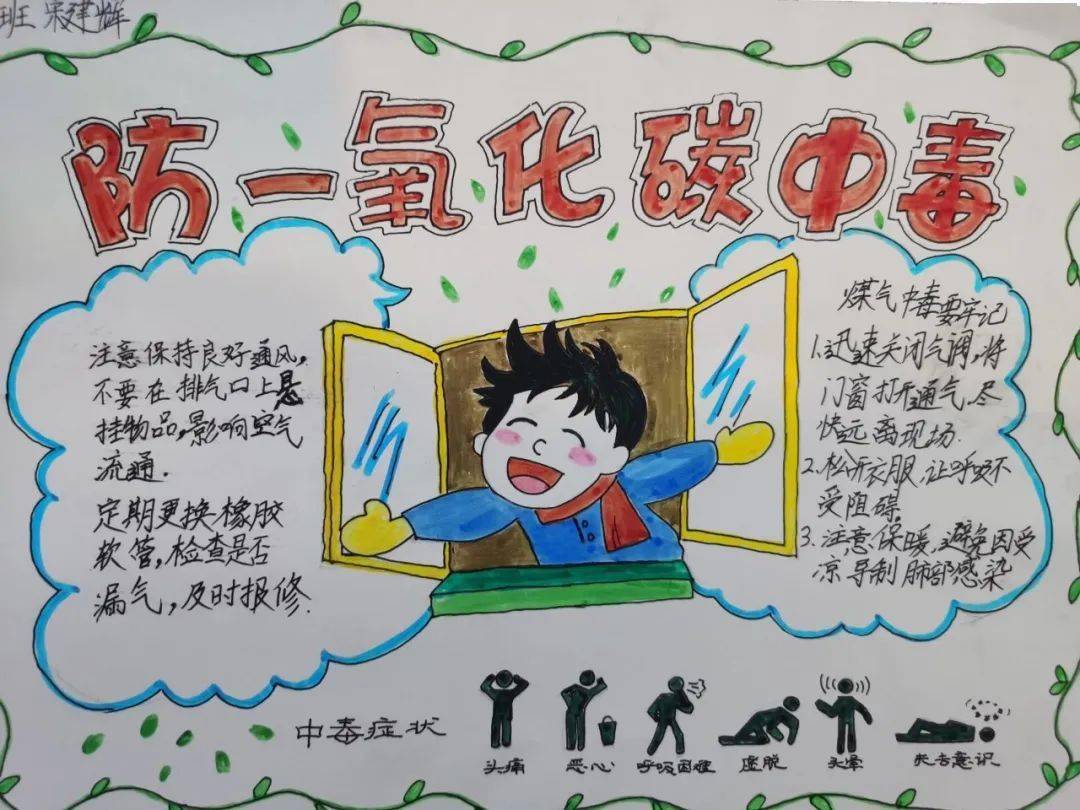 班 宋建辉
防一氧化碳中毒
注意保持良好通风,
不要在排气口上悬
挂物品,影响空气
流通.
定期更换橡胶
软管,检查是否
漏气,及时报修.
煤气中毒要牢记
1.迅速关闭气阀,将
门窗打开通气.尽
快远离现场.
2.松开衣服,让呼吸不
受阻碍
3.注意保暖,避免因受
凉导制肺部感染
中毒症状
头痛 恶心 呼吸困难 虚脱 头晕 失去意识